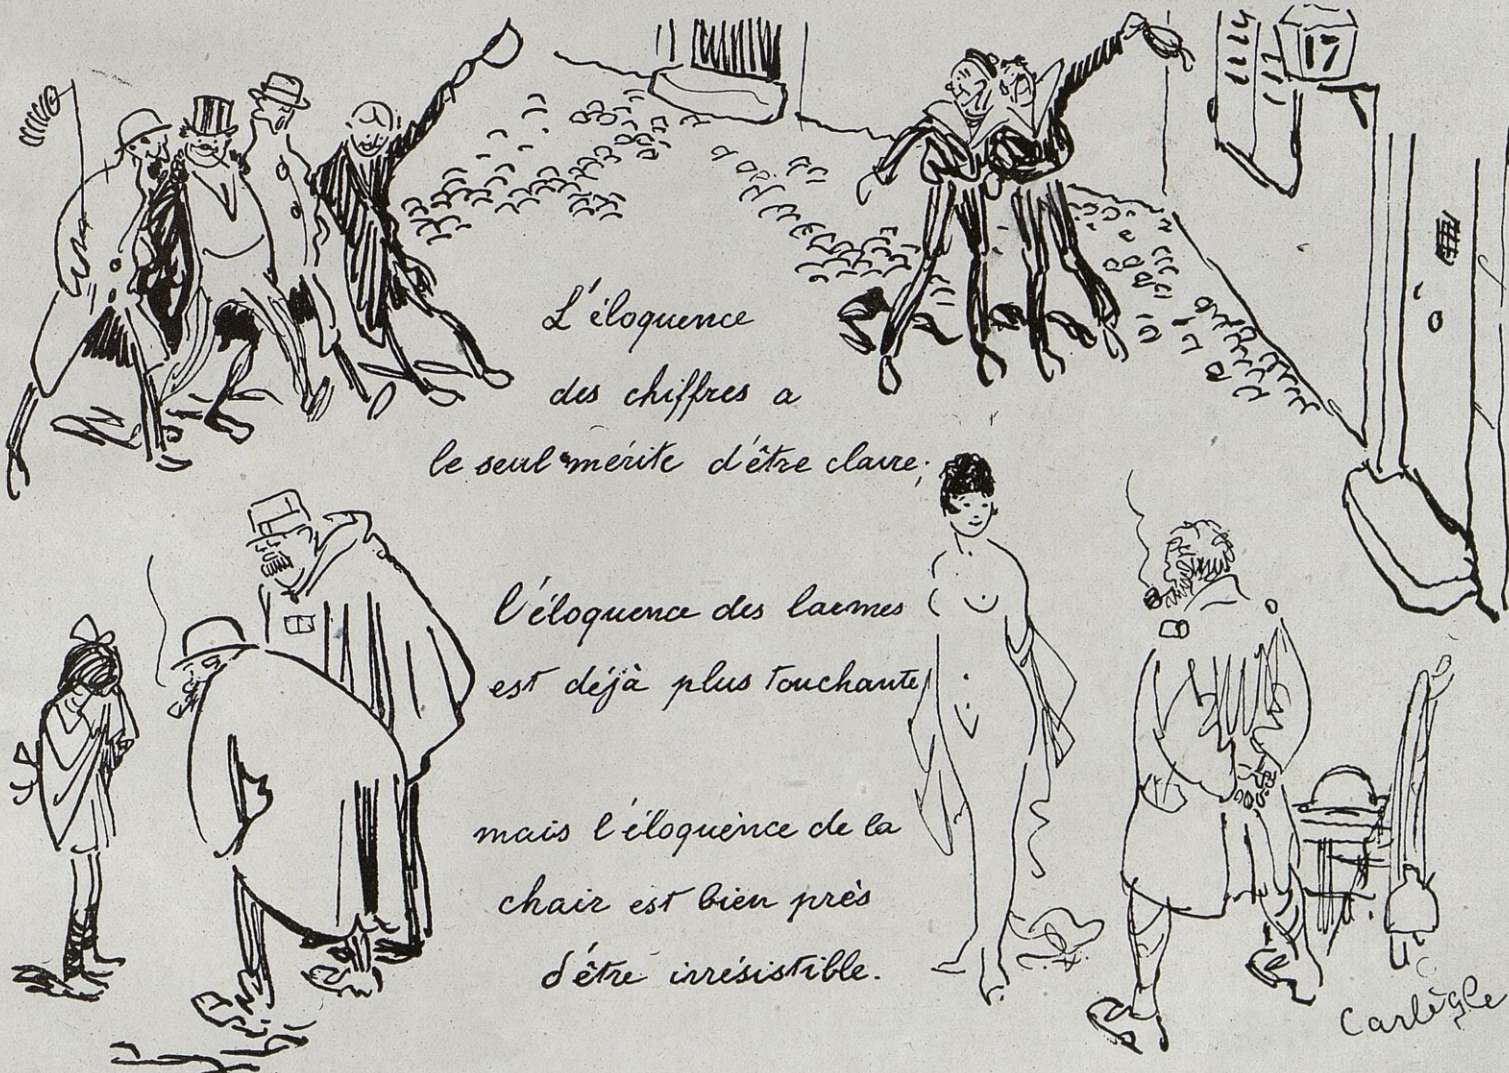 17
L'éloquence
des chiffres a
le seul mérite d'être claire;
l'éloquence des larmes
est déjà plus touchante,
mais l'éloquence de la
chair est bien près
d'être irrésistible.
Carlègle